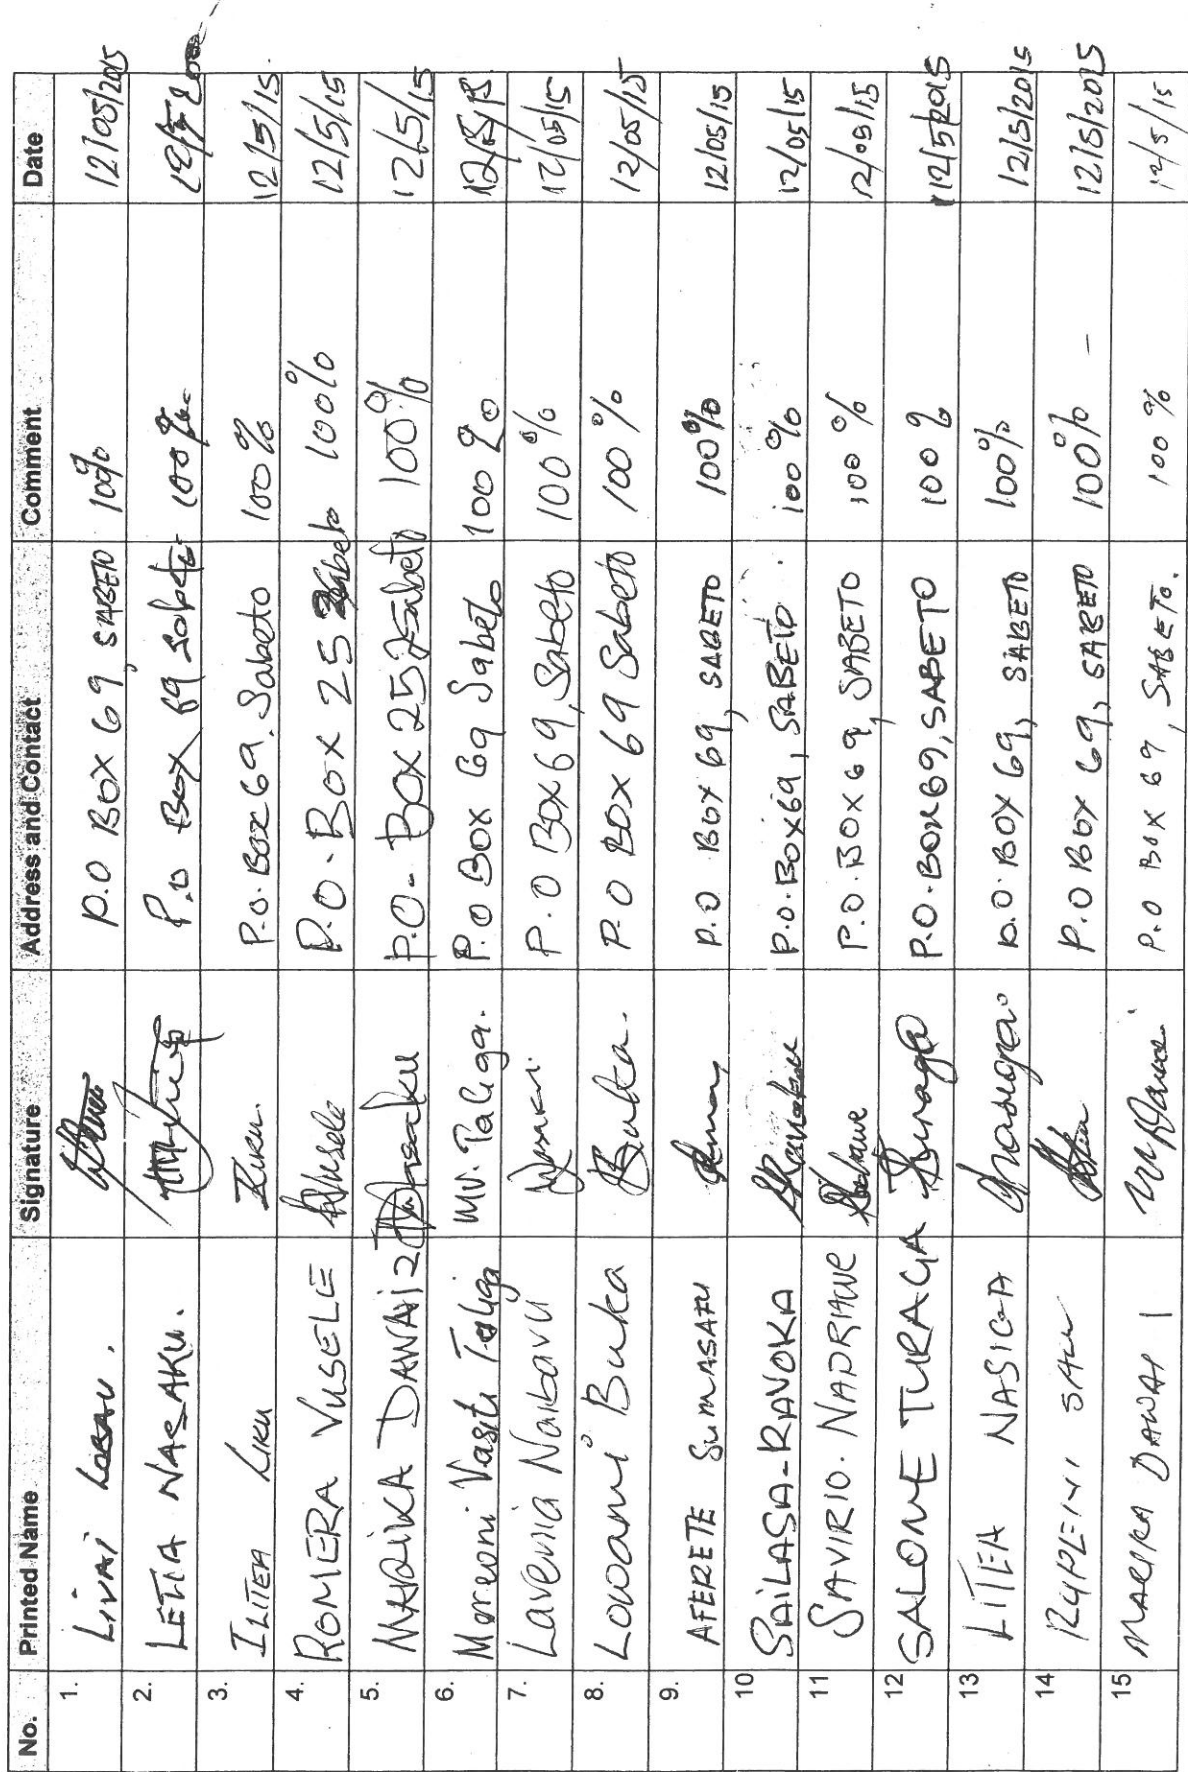 No. Printed Name Signature Address and Contact Comment Date
1. LIVAI P.O BOX 69, SABETO 100% 12/05/2015
2. LETIA NASAKU. P.O Box 69 Sabeto 100%
3. ILITEA LIKU Liku. P.O. Box 69, Sabeto 100% 12/5/15
4. ROMERA VUSELE Vusele P.O. Box 25 Sabeto 100% 12/5/15
5. MARIKA DAWAI 2 P.O. Box 252 Sabeto 100% 12/5/15
6. Mereoni Vasiti Taliga MV. Taliga. P.O Box 69 Sabeto 100% 12/5/15
7. Lavenia Naibavu P.O Box 69, Sabeto 100% 12/05/15
8. Lowami Buka Buka. P.O BOX 69 Sabeto 100% 12/05/15
9. AFERETE SumASAFU P.O BOX 69, SABETO 100% 12/05/15
10 SAILASA-RAVOKA P.O. BOX 69, SABETO. 100% 12/05/15
11 SAVIRIO. NADRIAWE P.O. BOX 69, SABETO 100% 12/05/15
12 SALOME TURAGA Turaga P.O. BOX 69, SABETO 100% 12/5/2015
13 LITEA NASIGA P.O. BOX 69, SABETO 100% 12/5/2015
14 RUPENI SAU P.O BOX 69, SABETO 100% - 12/5/2015
15 MARIKA DAWAI 1 P.O BOX 69, SABETO. 100% 12/5/15